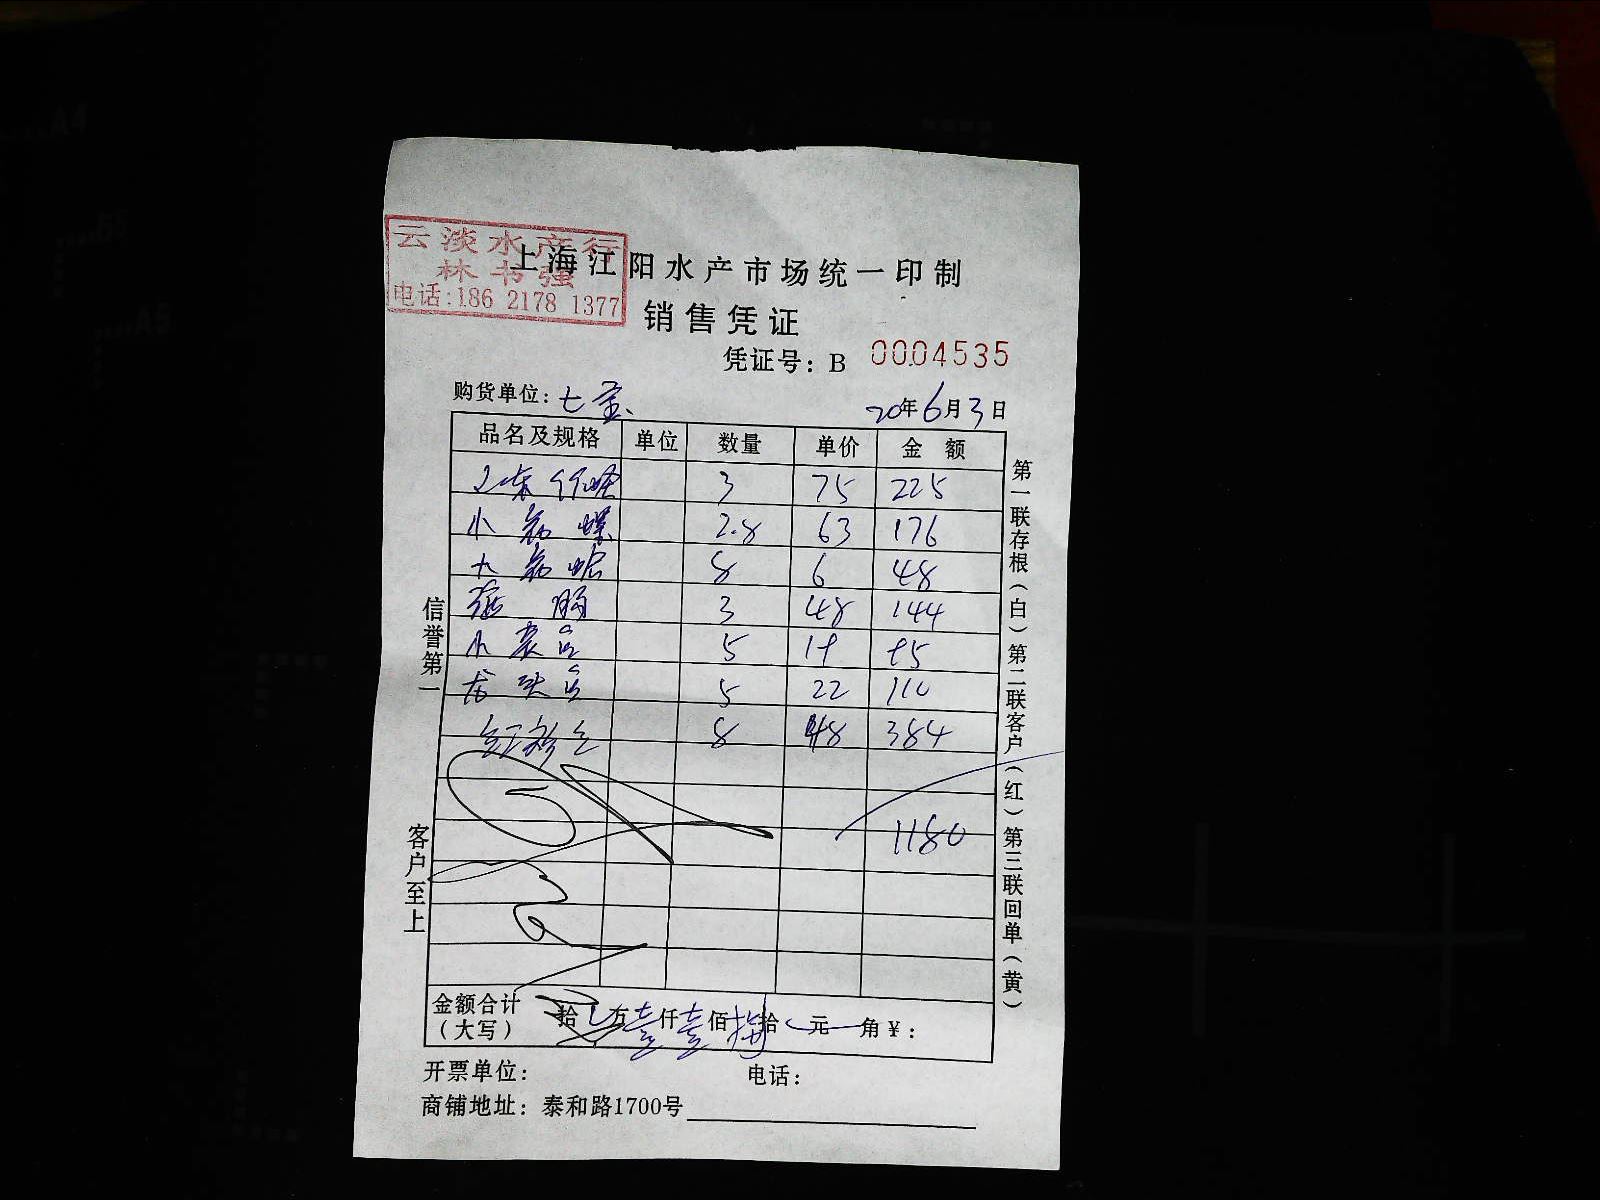 云淡水产行
林书强
电话:186 2178 1377
上海江阳水产市场统一印制
销售凭证
凭证号: B 0004535
购货单位: 七宝 20年6月3日
品名及规格 单位 数量 单价 金额
3 75 225
小 2.8 63 176
大 8 6 48
3 48 144
小黄鱼 5 19 95
龙头鱼 5 22 110
红衫鱼 8 48 384
1180
金额合计(大写) 拾 万壹仟壹佰捌拾 元 角¥:
开票单位: 电话:
商铺地址: 泰和路1700号
信誉第一
客户至上
第一联存根(白)第二联客户(红)第三联回单(黄)